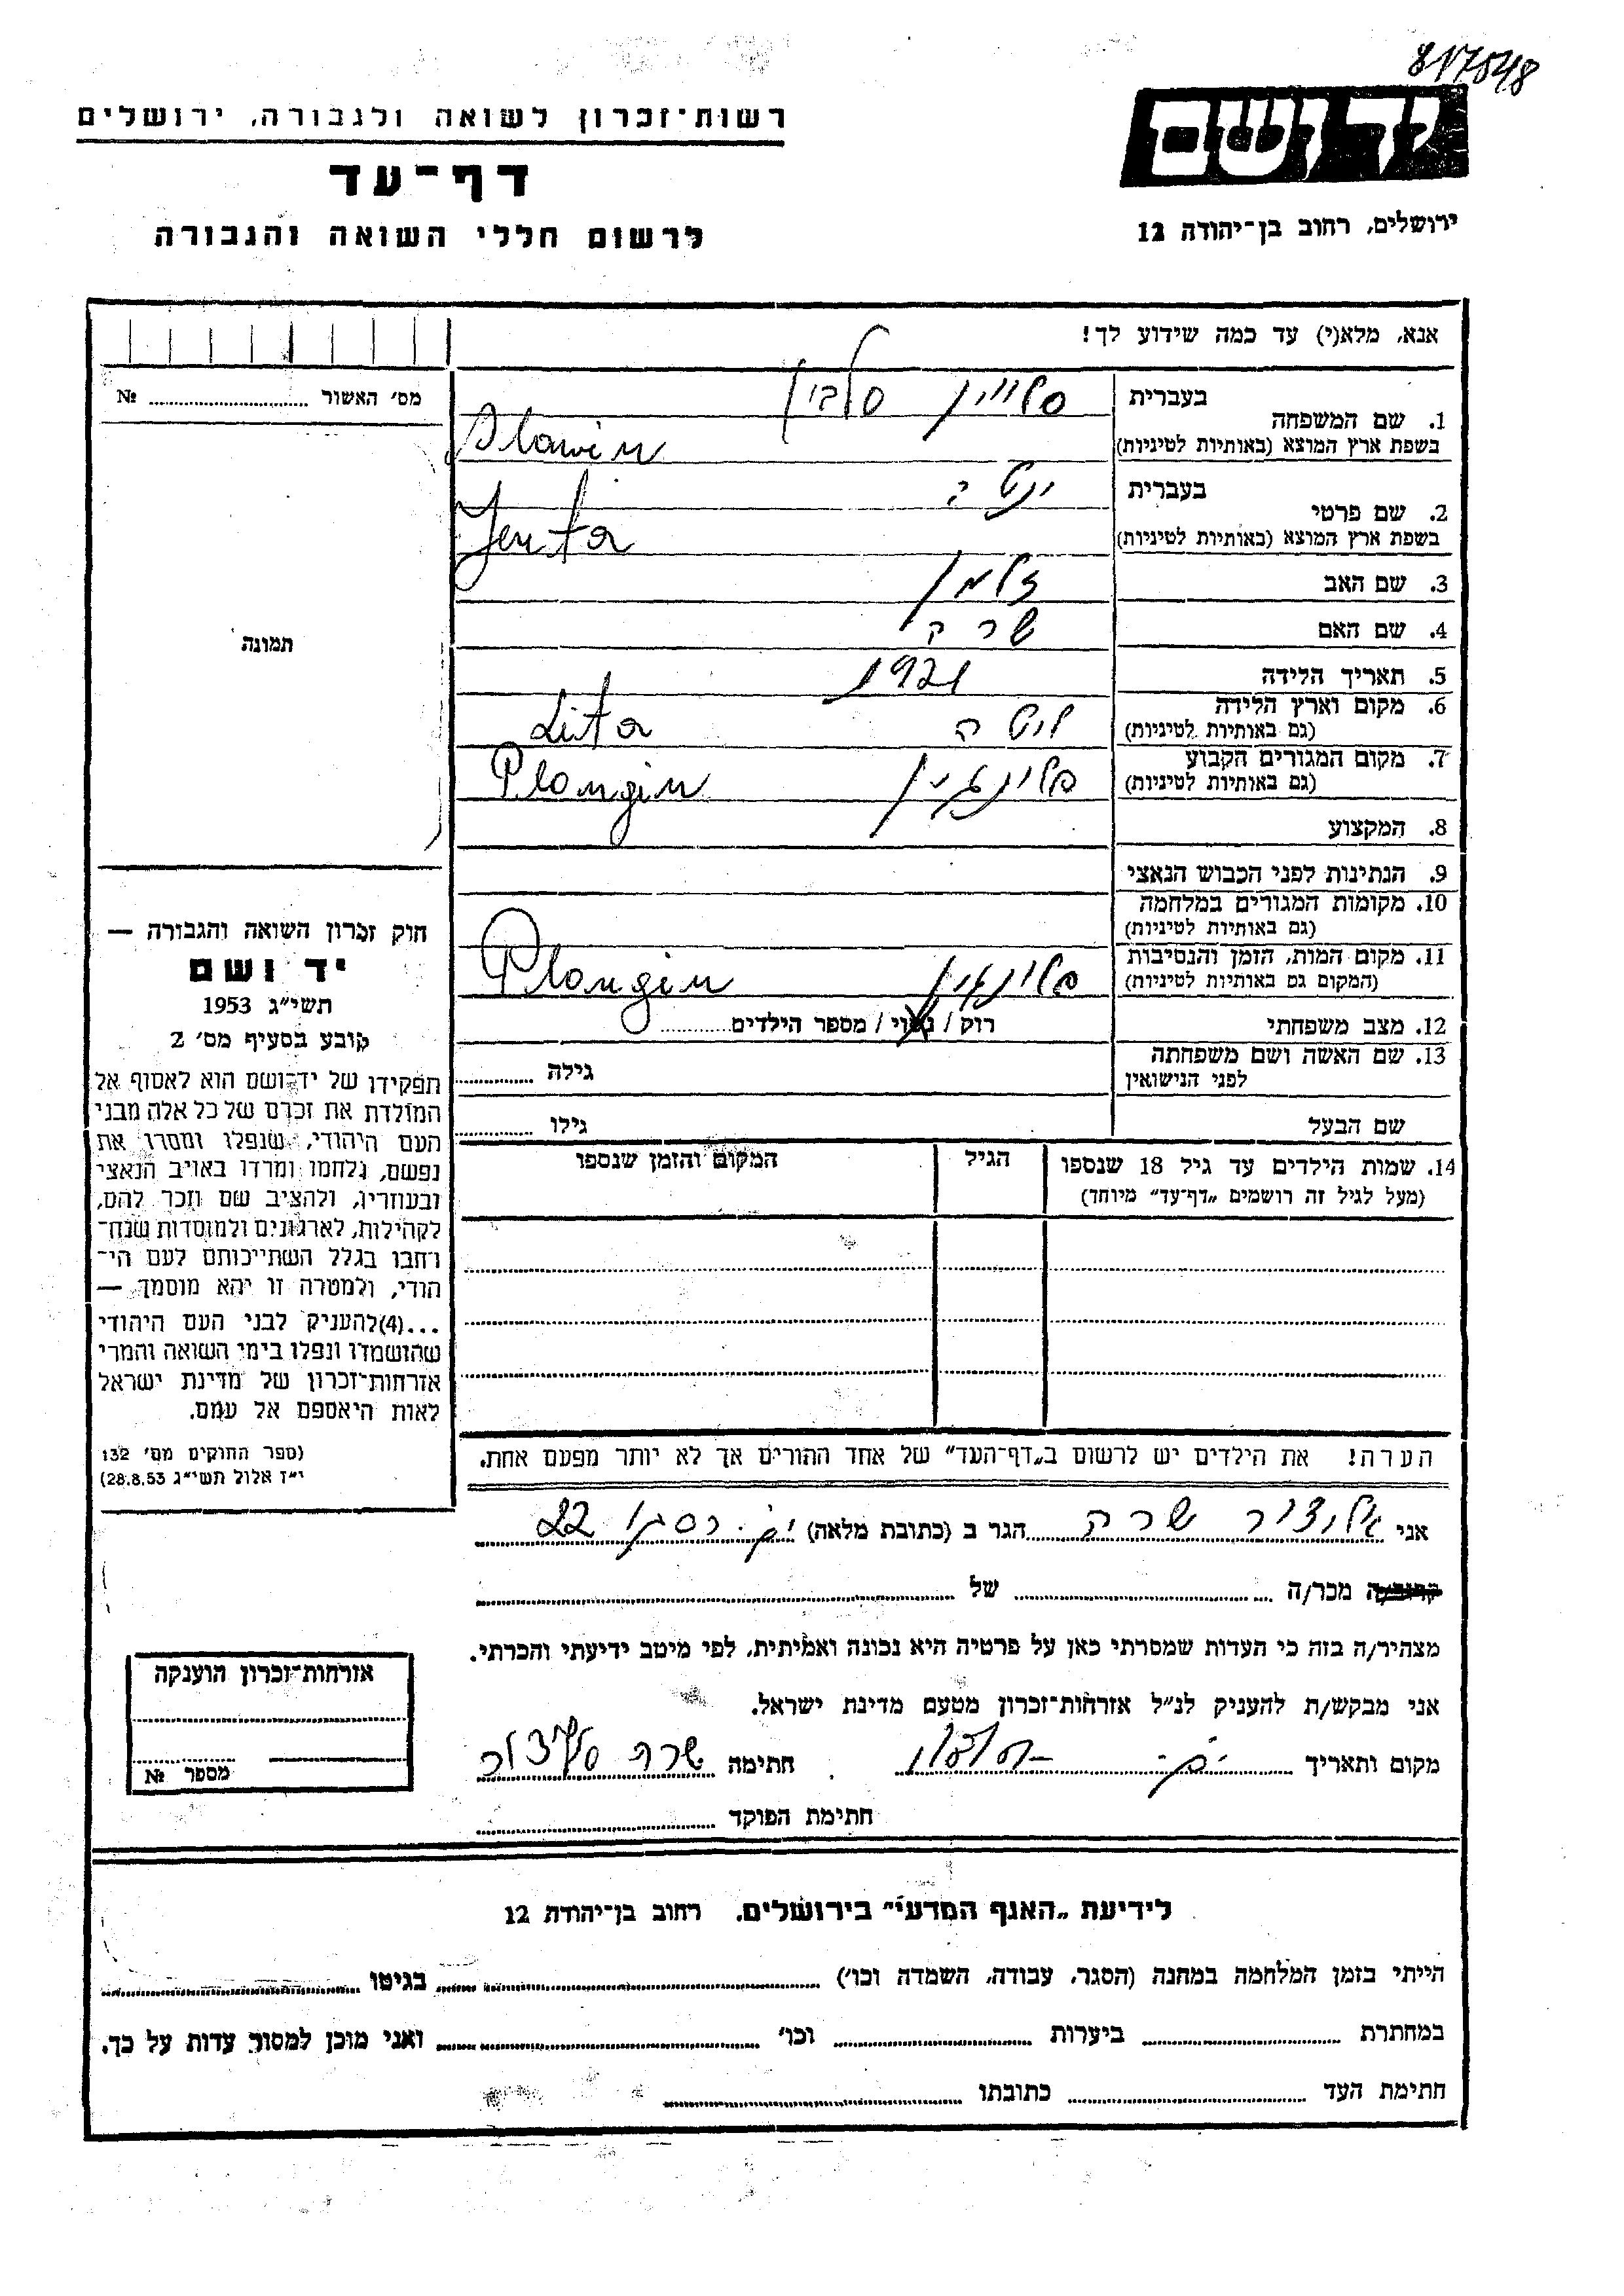 817548
רשות־זכרון לשואה ולגבורה, ירושלים
יד ושם
דף־עד
לרשום חללי השואה והגבורה
ירושלים, רחוב בן־יהודה 12
אנא, מלא(י) עד כמה שידוע לך!
מס׳ האשור ........ №
1. שם המשפחה
בעברית סלווין סלבין
בשפת ארץ המוצא (באותיות לטיניות) Slawin
2. שם פרטי
בעברית ינטה
בשפת ארץ המוצא (באותיות לטיניות) Jenta
3. שם האב זלמן
4. שם האם שרה
תמונה
5. תאריך הלידה 1921
6. מקום וארץ הלידה ליטה Lita
(גם באותיות לטיניות)
7. מקום המגורים הקבוע פלונגין Plongin
(גם באותיות לטיניות)
8. המקצוע
9. הנתינות לפני הכבוש הנאצי
10. מקומות המגורים במלחמה
(גם באותיות לטיניות)
11. מקום המות, הזמן והנסיבות פלונגין Plongin
(המקום גם באותיות לטיניות)
12. מצב משפחתי רוק / נשוי / מספר הילדים........
13. שם האשה ושם משפחתה
לפני הנישואין גילה ........
שם הבעל גילו ........
14. שמות הילדים עד גיל 18 שנספו הגיל המקום והזמן שנספו
(מעל לגיל זה רושמים „דף־עד״ מיוחד)
חוק זכרון השואה והגבורה —
יד ושם
תשי״ג 1953
קובע בסעיף מס׳ 2
תפקידו של יד־ושם הוא לאסוף אל
המולדת את זכרם של כל אלה מבני
העם היהודי, שנפלו ומסרו את
נפשם, נלחמו ומרדו באויב הנאצי
ובעוזריו, ולהציב שם וזכר להם,
לקהילות, לארגונים ולמוסדות שנח־
רחבו בגלל השתייכותם לעם הי־
הודי, ולמטרה זו יהא מוסמך —
...(4)להעניק לבני העם היהודי
שהושמדו ונפלו בימי השואה והמרי
אזרחות־זכרון של מדינת ישראל
לאות היאספם אל עמם.
(ספר החוקים מס׳ 132
י״ז אלול תשי״ג 28.8.53)
הערה! את הילדים יש לרשום ב„דף־העד״ של אחד ההורים אך לא יותר מפעם אחת.
אני שרה הגר ב (כתובת מלאה) 22
קרוב/ה מכר/ה ........ של ........
מצהיר/ה בזה כי העדות שמסרתי כאן על פרטיה היא נכונה ואמיתית, לפי מיטב ידיעתי והכרתי.
אני מבקש/ת להעניק לנ״ל אזרחות־זכרון מטעם מדינת ישראל.
מקום ותאריך חתימה שרה
חתימת הפוקד ........
אזרחות־זכרון הוענקה
מספר №
לידיעת „האגף המדעי״ בירושלים, רחוב בן־יהודה 12
הייתי בזמן המלחמה במחנה (הסגר, עבודה, השמדה וכו׳) ........ בגיטו ........
במחתרת ........ ביערות ........ וכו׳ ........ ואני מוכן למסור עדות על כך.
חתימת העד ........ כתובתו ........